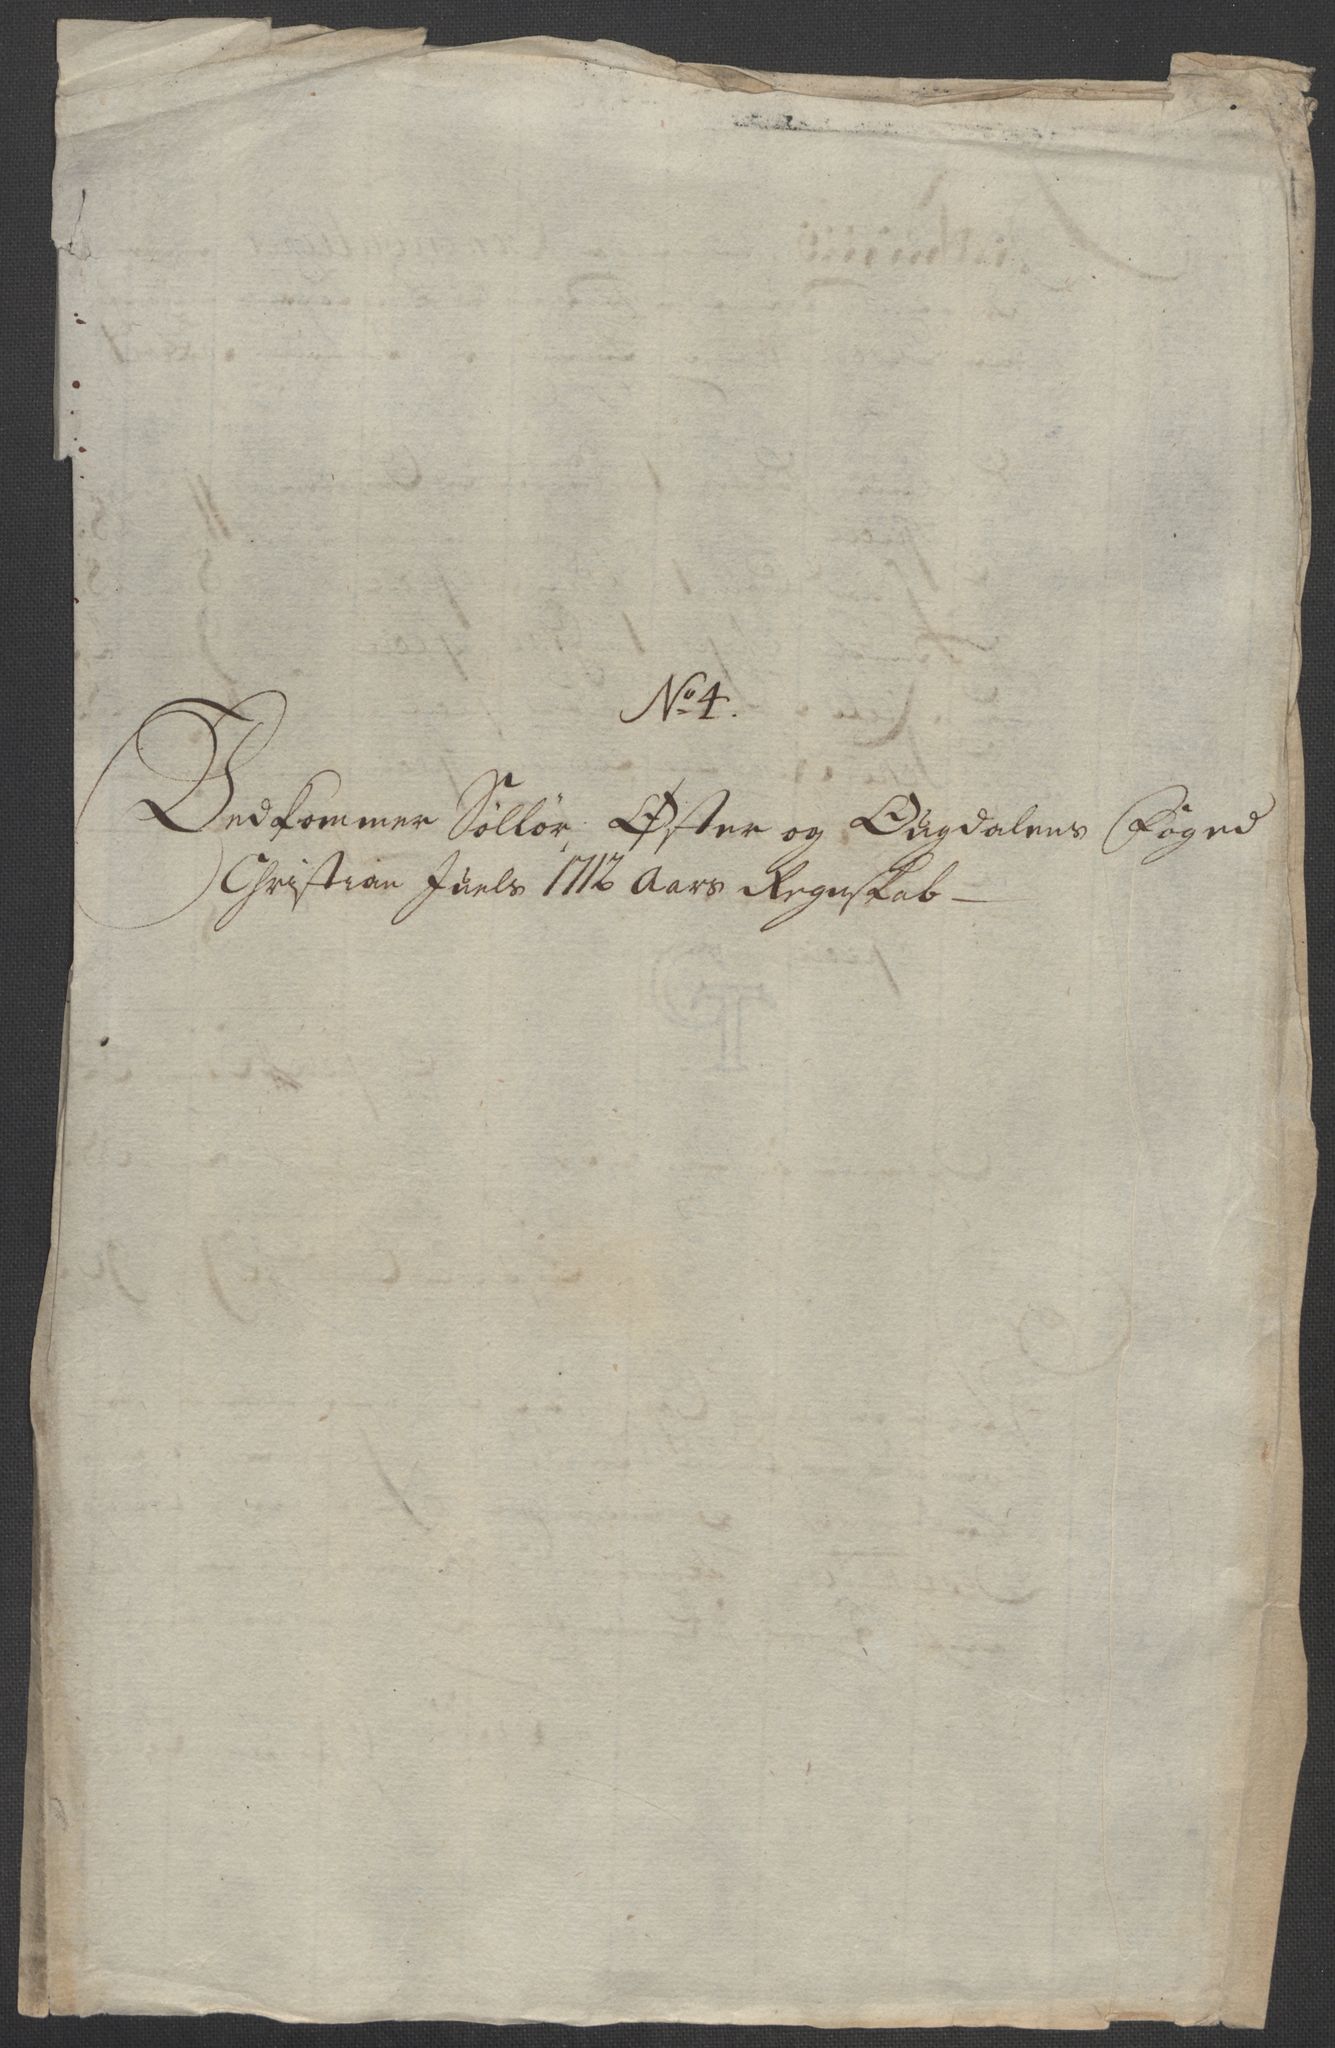 No 4.
Vedkommer Sollør, Øster og Oudalens Foged
Christian Juels 1712 Aars Regnskab